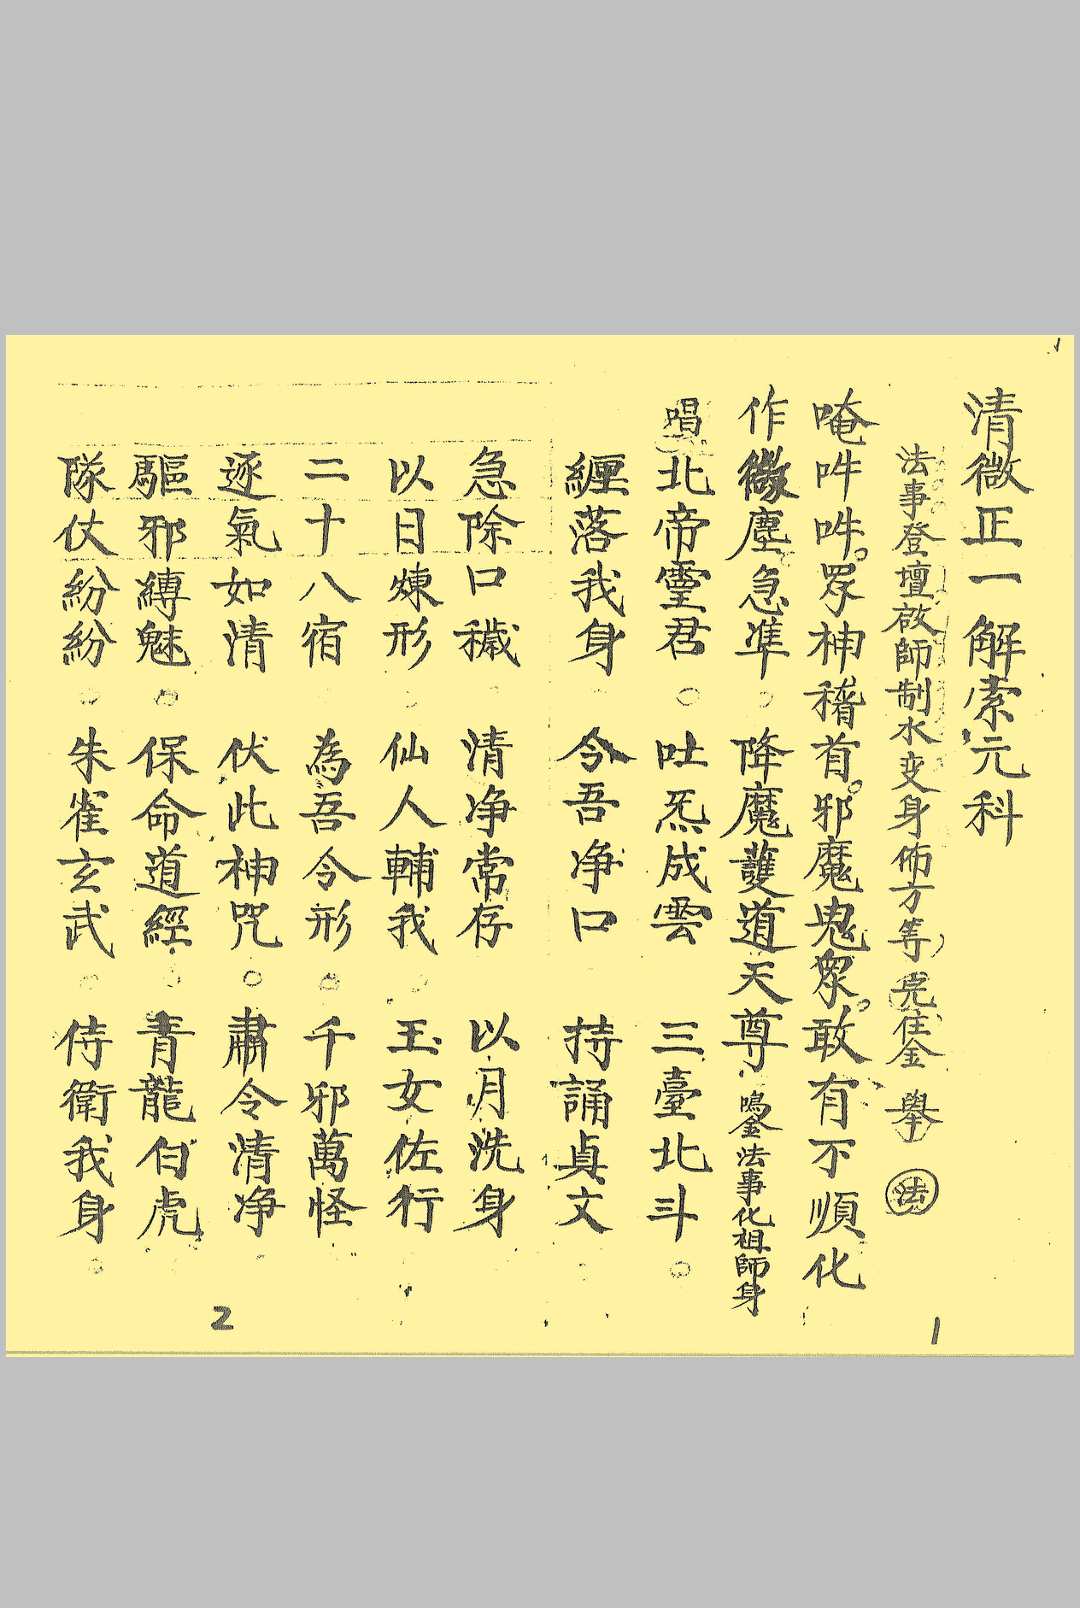 清微正一解索元科
法事登壇啟師制水变身佈方等完住金 舉 法
唵吽吽。眾神稽首。邪魔鬼眾。敢有不順化
作微塵急準 降魔護道天尊 鳴金法事化祖師身
唱北帝靈君○吐炁成雲 三臺北斗○
纏落我身 令吾净口 持誦真文
急除口穢 清净常存 以月洗身
以日煉形 仙人輔我 玉女佐行
二十八宿 為吾令形○千邪萬怪
逐氣如清 伏此神咒○肅令清净
驅邪縛魅○保命道經 青龍白虎
隊仗紛紛○朱雀玄武○侍衛我身○
2
1